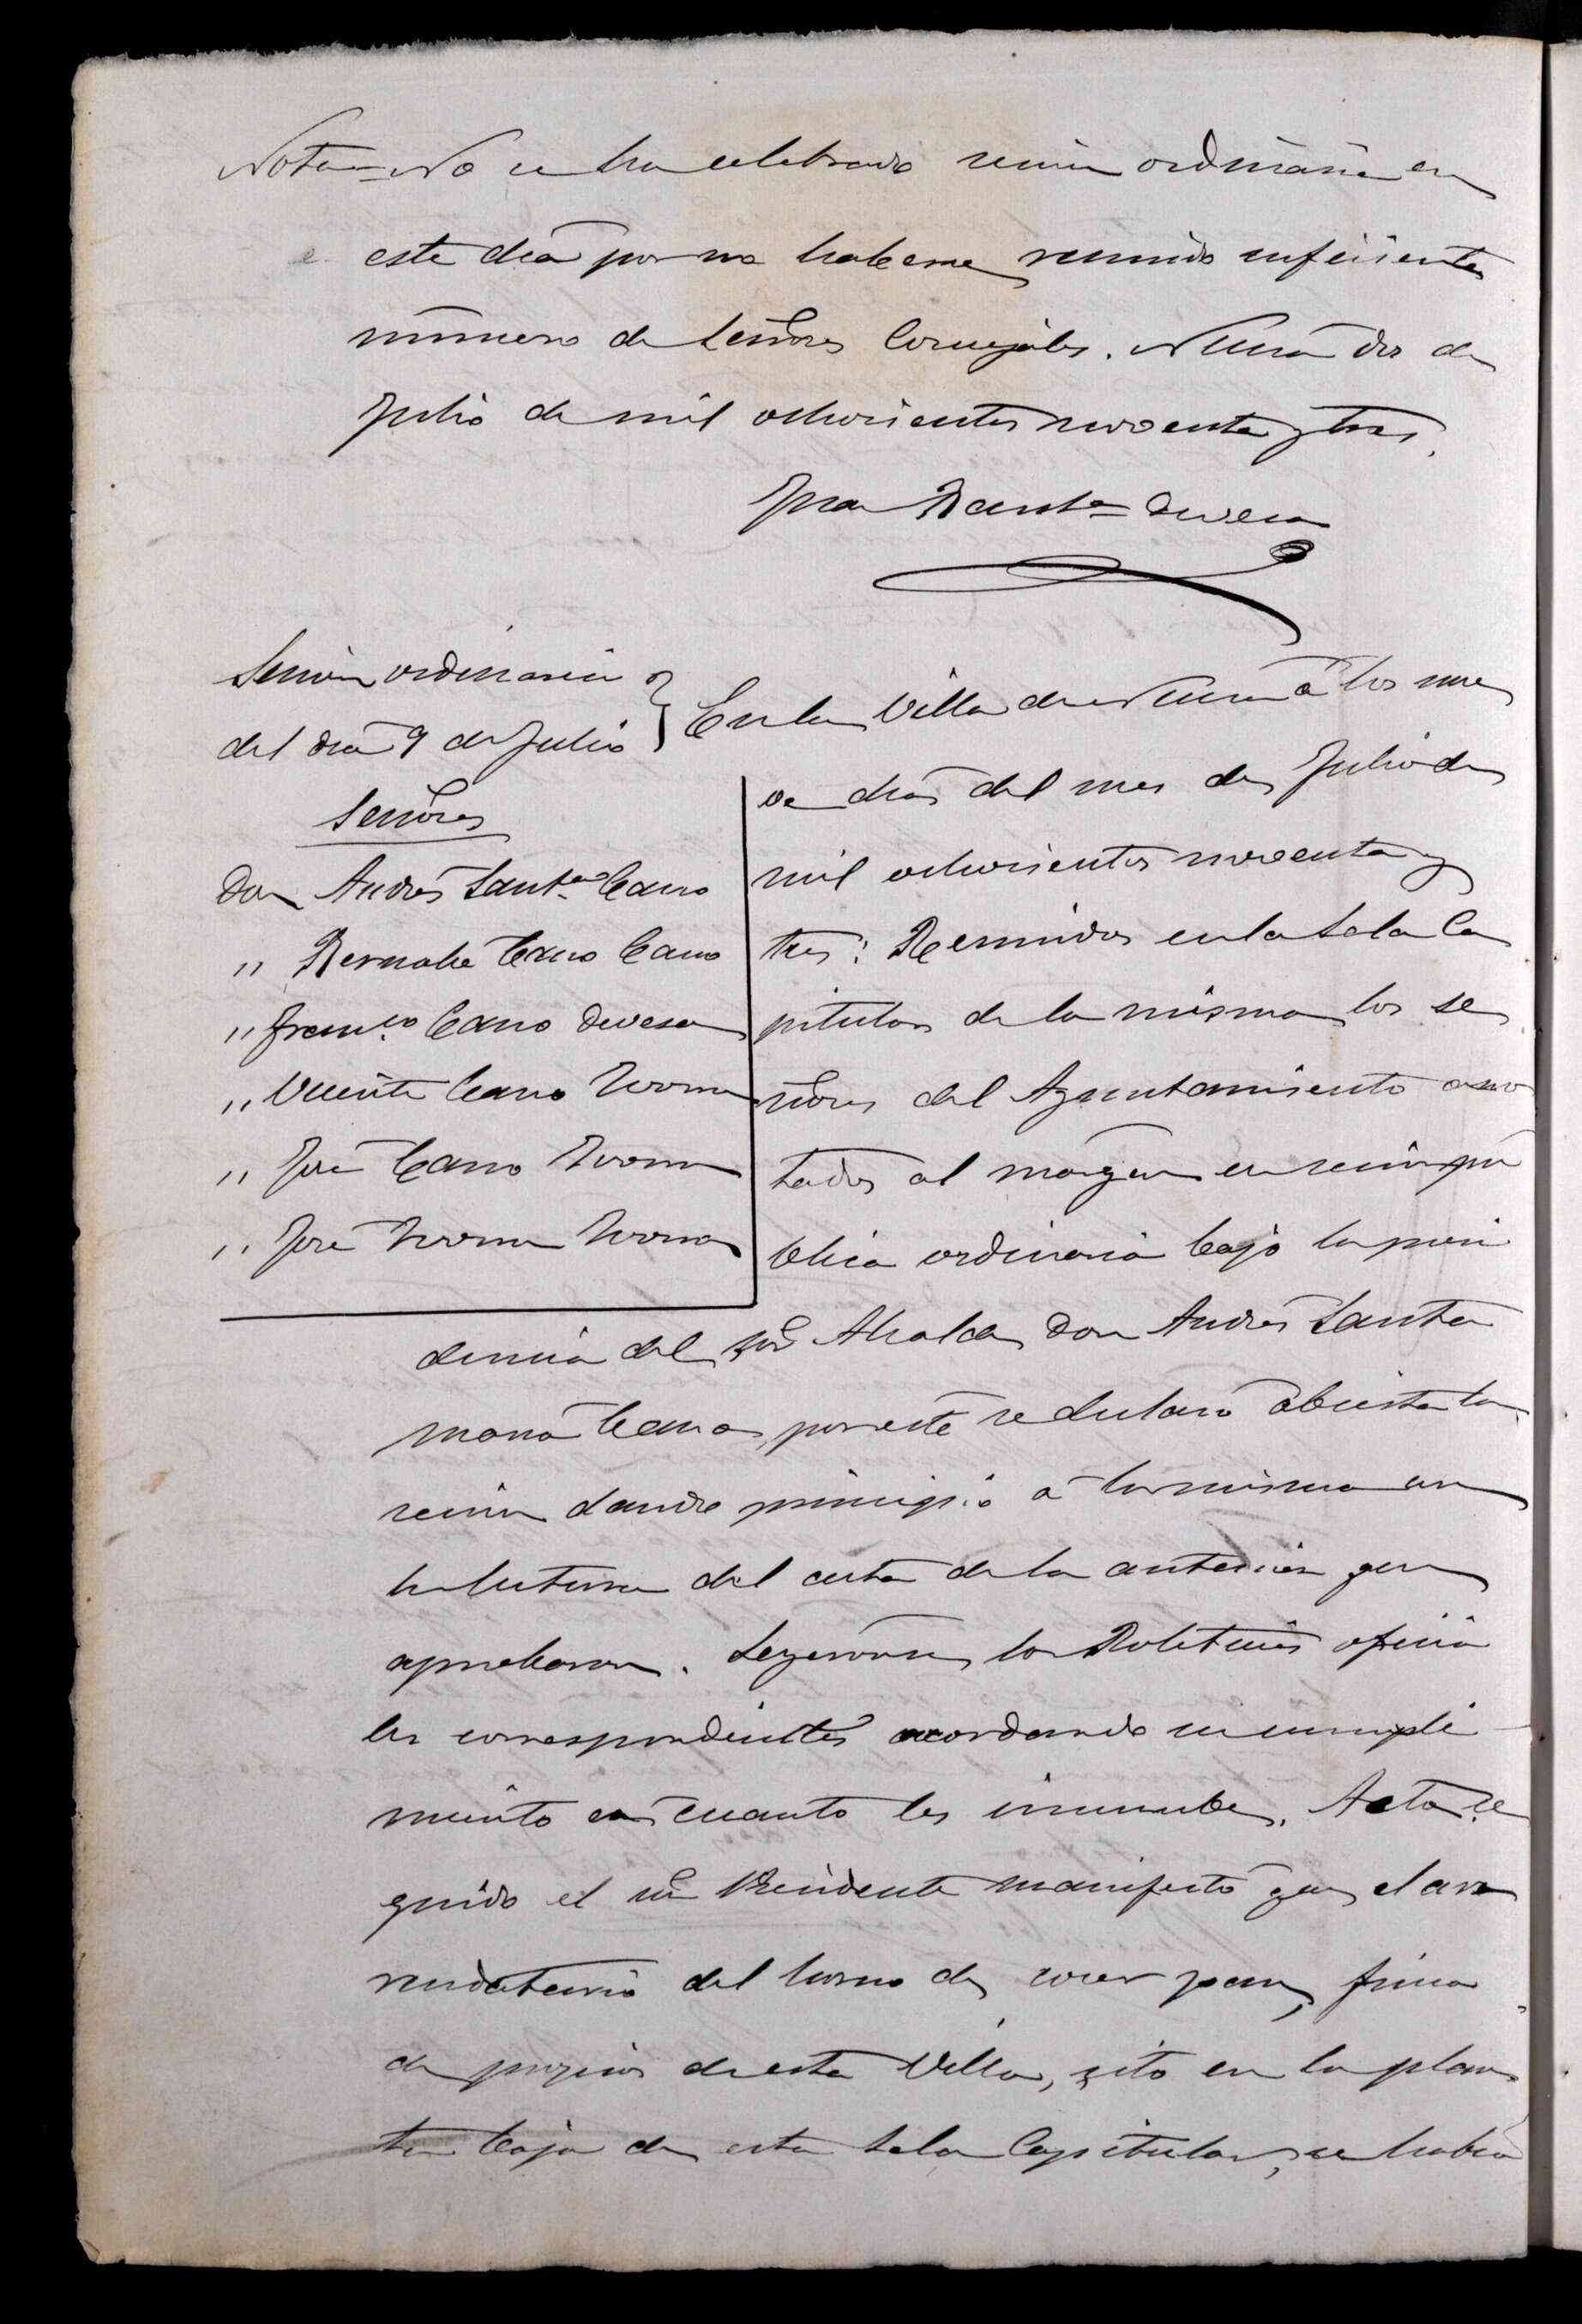 Nota = No se ha celebrado sesion ordinaria en
este dia por no haberse reunido suficiente
número de Señores Concejales. Nucia dos de
Julio de mil ochocientos noventa y tres.
Juan Bauta Devesa
Sesion ordinaria
del dia 9 de Julio
Señores
Don Andrés Santa Cano
" Bernabe Cano Cano
" Franco Cano Devesa
" Vicente Cano Llorens
" José Cano Llorens
" José Llorens Llorens
En la Villa de Nucia á los nue
ve dias del mes de Julio de
mil ochocientos noventa y
tres: Reunidos en la Sala Ca
pitular de la misma los se
ñores del Ayuntamiento ano
tados al margen en sesion pú
blica ordinaria bajo la presi
dencia del Sor Alcalde Don Andrés Santa
maria Cano, por este se declaró abierta la
sesion dando principio á la misma con
la lectura del acta de la anterior que
aprobaron. Leyeronse los Boletines oficia
les correspondientes acordando su cumpli
miento en cuanto les incumbe. Acto se
guido el Sor Presidente manifestó que el arren
rendatario del horno de cocer pan, finca
de propios de esta Villa, sito en la plan
ta baja de esta Sala Capitular, se habia